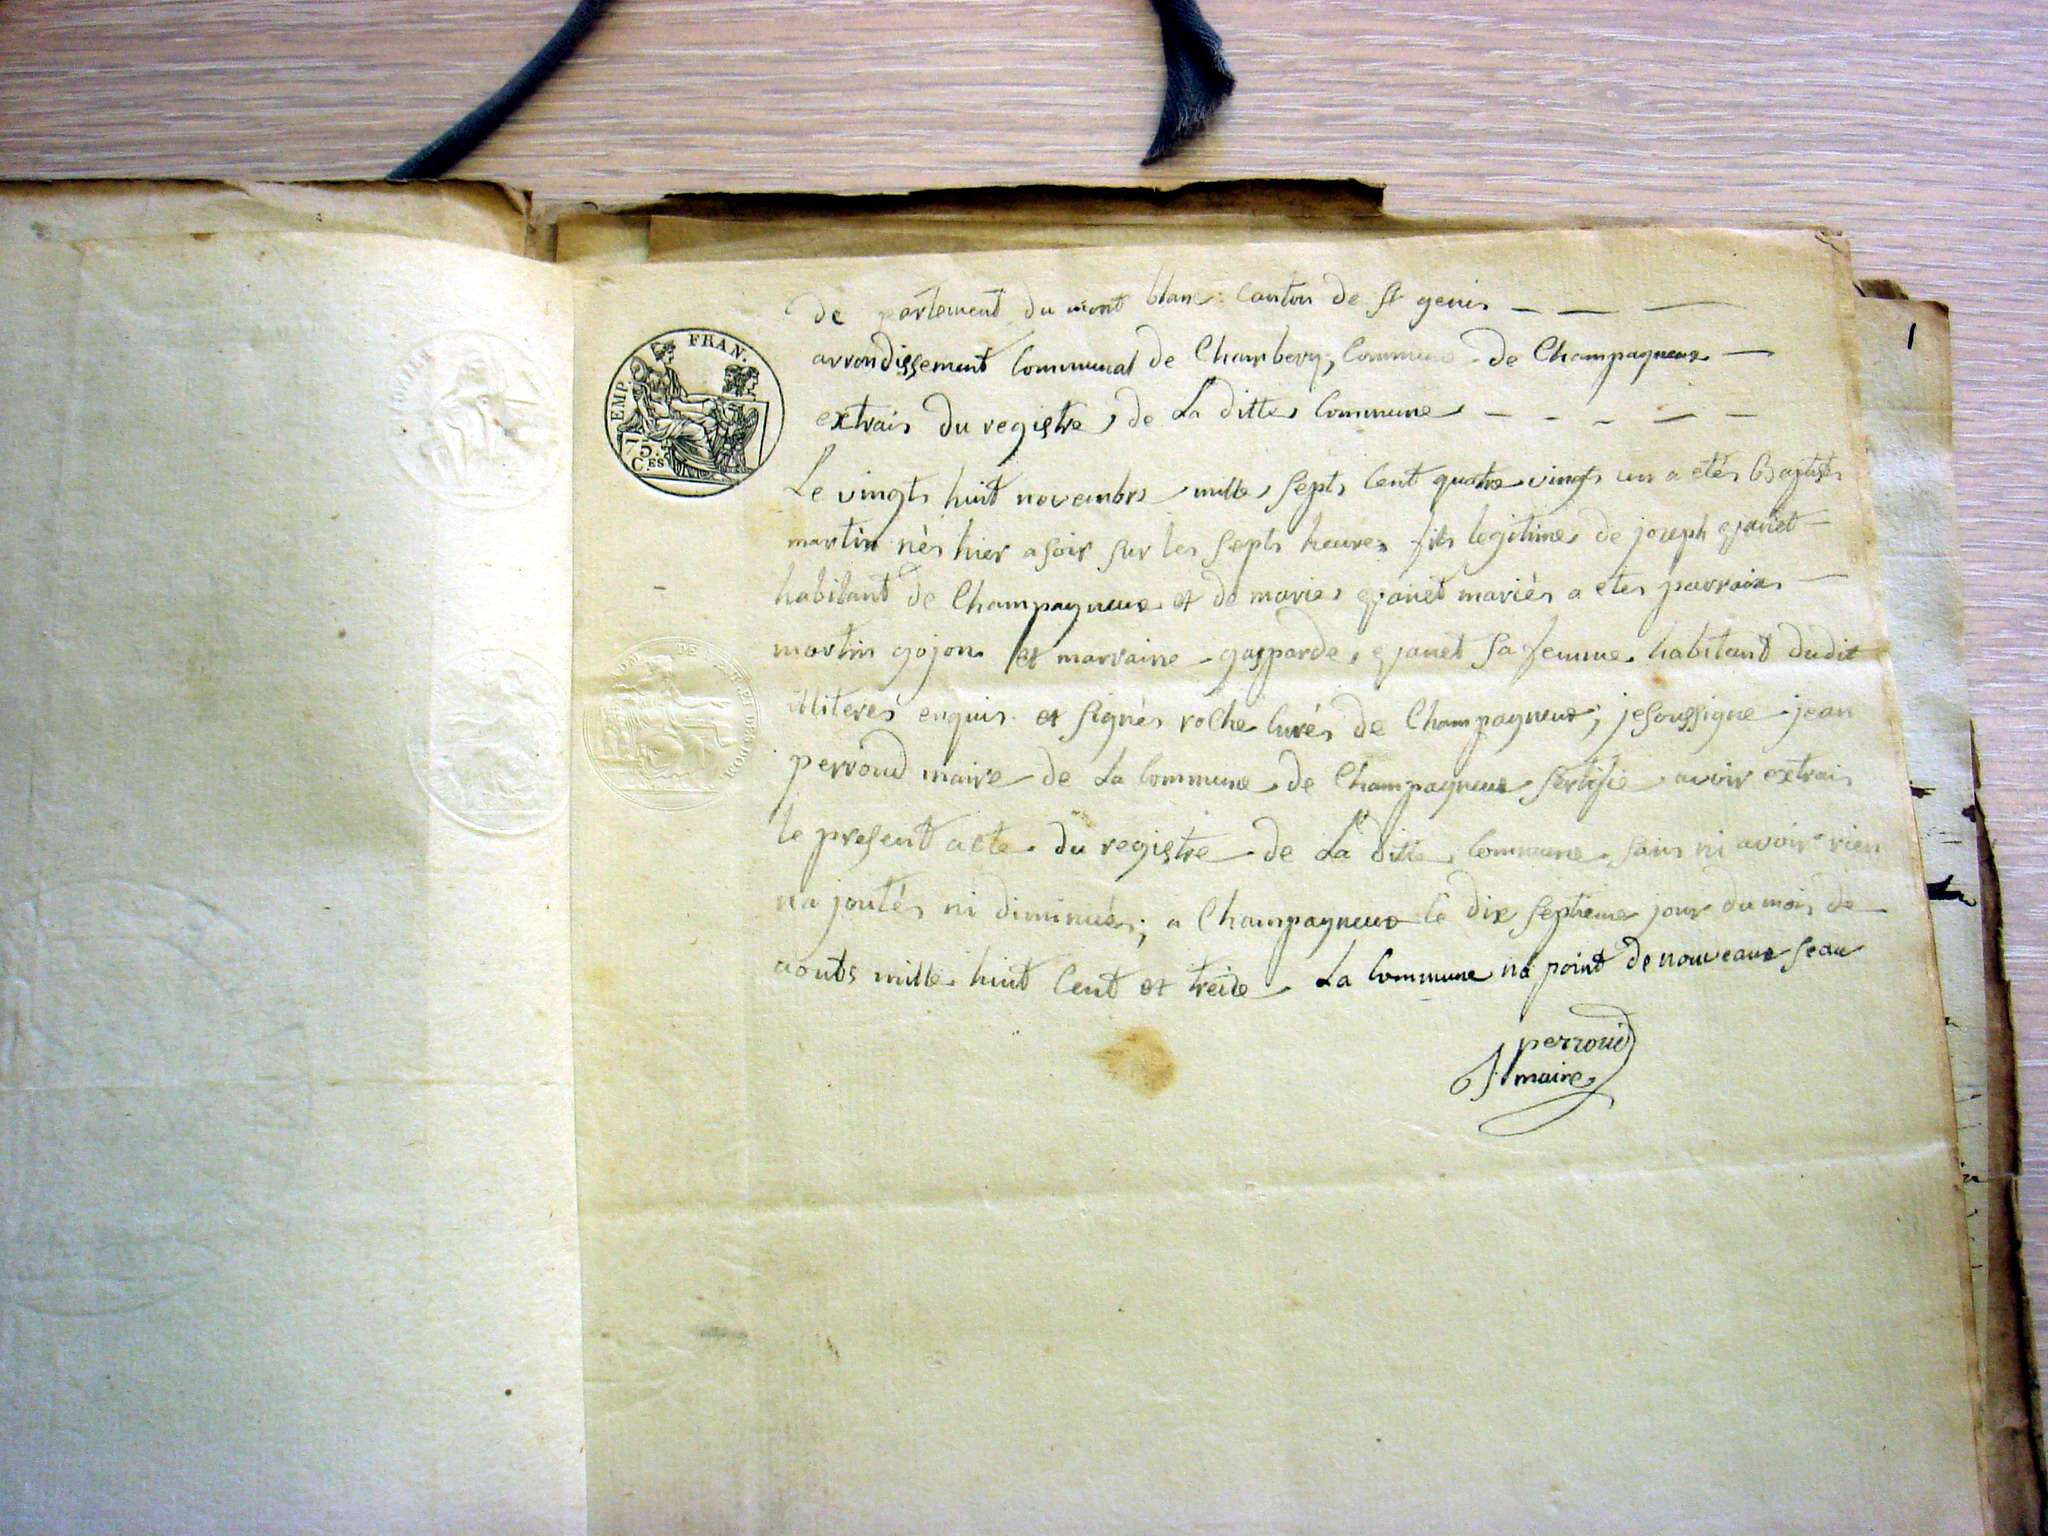 de partement du mont blanc canton de st genis
arrondissement Communal de Chambery, Commune de Champagneux
extrais du registre de La ditte Commune
EMP. FRAN.
75. Ces
Le vingts huit novembre mille septs Cent quatre vingts un a etés Baptisés
martin nès hier asoir sur les septs heures fils legitime de joseph gjanet
habitant de Champagneux et de marie gjanet mariés a etes parrain
martin gojon et marraine gasparde gjanet sa femme habitant dudit
illiterés enquis et signés roche Curés de Champagneux; jesoussigne jean
perroud maire de La Commune de Champagneux sertifie avoir extrais
le present acte du registre de La ditte Commune sans ni avoir rien
na joutés ni diminués; a Champagneux le dix septieme jour du mois de
aouts mille huit Cent et treide La Commune na point de nouveaux seau
perroud
J maire
1